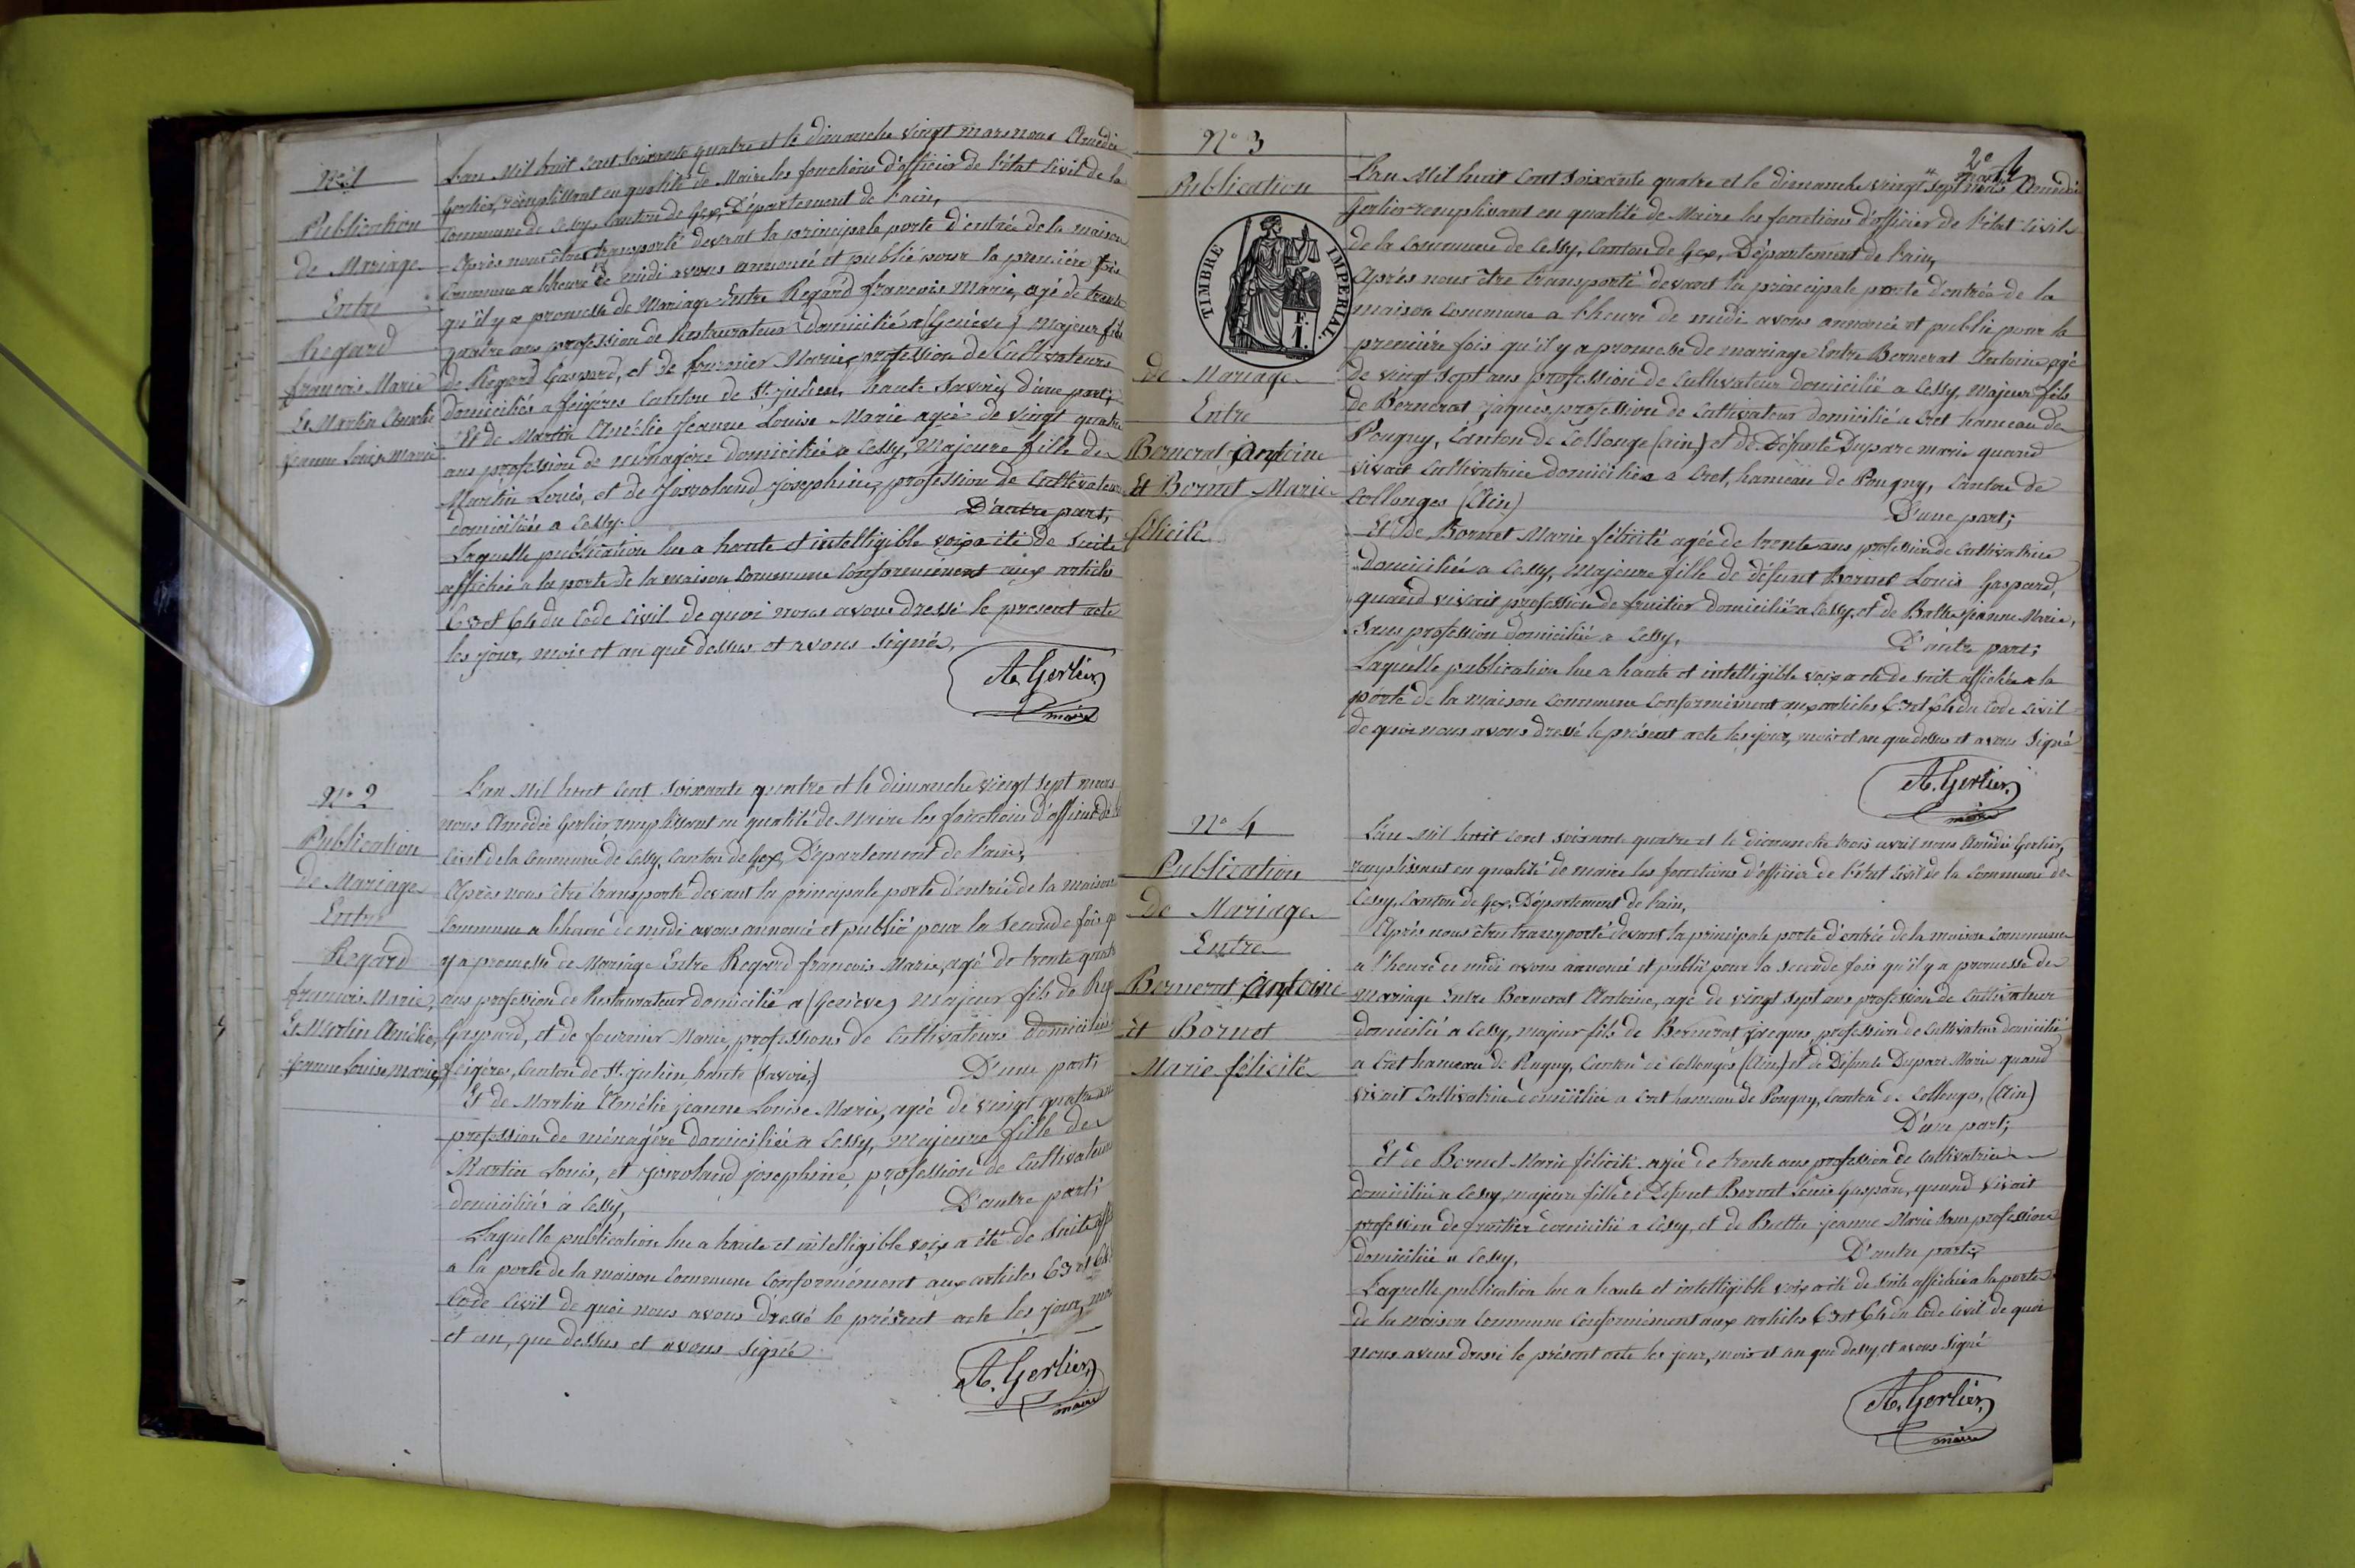 N° 1
Publication
de Mariage
Entre
Regard
françois Marie
Et Martin Amélie
jeanne Louise Marie
L'an Mil huit Cent soixante quatre et le dimanche vingt mars nous Amédée
Gerlier, remplissant en qualité de Maire les fonctions d'officier de l'état Civil de la
Commune de Cessy, Canton de Gex, Département de l'ain,
Après nous être transporté devant la principale porte d'entrée de la maison
Commune a l'heure de midi avons annoncé et publié pour la première fois
qu'il y a promesse de Mariage Entre Regard françois Marie, agé de trente
quatre ans profession de Restaurateur domicilié a (Genève) majeur fils
de Regard Gaspard, et de fournier Marie, profession de Cultivateurs
domiciliés a feigères Canton de St. julien, haute Savoie, d'une part;
Et de Martin Amélie Jeanne Louise Marie agée de vingt quatre
ans profession de ménagère domiciliée a Cessy, Majeure fille de
Martin Louis, et de josephine, profession de Cultivateurs
domiciliés a Cessy. D'autre part;
Laquelle publication lue a haute et intelligible voix a été de suite
affichée a la porte de la maison Commune Conformément aux articles
63 et 64 du Code Civil de quoi nous avons dressé le present acte
les jour, mois et an que dessus et avons signé,
A. Gerlier
maire
N° 2
Publication
de Mariage
Entre
Regard
françois Marie,
Et Martin Amélie,
jeanne Louise marie,
L'an Mil huit Cent soixante quatre et le dimanche vingt sept mars
nous Amédée Gerlier remplissant en qualité de Maire les fonctions d'officier de
Civil de la Commune de Cessy, Canton de Gex, Département de l'ain,
Après nous être transporté devant la principale porte d'entrée de la maison
Commune a l'heure de midi avons annoncé et publié pour la seconde fois
y a promesse de Mariage Entre Regard françois Marie, agé de trente quatre
ans profession de Restaurateur domicilié a (Genève) majeur fils de Reg
Gaspard, et de fournier Marie, professions de Cultivateurs domiciliés
feigères, Canton de St. julien, haute (Savoie,) D'une part;
Et de Martin Amélie jeanne Louise Marie, agée de vingt quatre ans
profession de ménagère domiciliée a Cessy, Majeure fille de
Martin Louis, et josephine, profession de Cultivateurs
domiciliés à Cessy, D'autre part;
Laquelle publication lue a haute et intelligible voix a été de suite aff
a la porte de la maison Commune Conformément aux articles 63 et 64
Code Civil de quoi nous avons dressé le présent acte les jour, moi
et an, que dessus et avons signé
A. Gerlier
maire
N° 3
Publication
TIMBRE IMPERIAL.
F.
1.
de Mariage
Entre
Bernerat Antoine
Et Bornet Marie
félicité
2e
L'an Mil huit Cent soixante quatre et le dimanche vingt sept nous Amédée
Gerlier remplissant en qualité de Maire les fonctions d'officier de l'état Civil
de la Commune de Cessy, Canton de Gex, Département de l'ain,
Après nous être transporté devant la principale porte d'entrée de la
maison Commune a l'heure de midi avons annoncé et publié pour la
première fois qu'il y a promesse de mariage Entre Bernerat Antoine agé
de vingt sept ans profession de Cultivateur domicilié a Cessy, Majeur fils
de Bernerat jaques, profession de Cultivateur domicilié a Cret hameau de
Pougny, Canton de Collonge (ain) et de Défunte Duparc marie quand
vivait Cultivatrice domiciliée a Cret, hameau de Pougny, Canton de
Collonges (Ain) D'une part;
Et de Bornet Marie félicité agée de trente ans profession de Cultivatrice
Domiciliée a Cessy, Majeure fille de défunt Bornet Louis Gaspard,
quand vivait profession de fruitier domicilié a Cessy, et de jeanne Marie,
Sans profession domiciliée a Cessy, D'autre part;
Laquelle publication lue a haute et intelligible voix a été de suite affichée a la
porte de la maison Commune Conformément aux articles 63 et 64 du Code Civil
de quoi nous avons dressé le présent acte les jour, mois et an que dessus et avons signé
A. Gerlier
maire
N° 4
Publication
de Mariage
Entre
Bernerat Antoine
Et Bornet
Marie félicité
L'an Mil huit Cent soixante quatre et le dimanche trois avril nous Amédée Gerlier,
remplissant en qualité de maire les fonctions d'officier de l'état Civil de la Commune de
Cessy, Canton de Gex, Département de l'ain,
Après nous être transporté devant la principale porte d'entrée de la maison Commune
a l'heure de midi avons annoncé et publié pour la seconde fois qu'il y a promesse de
mariage Entre Bernerat Antoine, agé de vingt sept ans profession de Cultivateur
domicilié a Cessy, majeur fils de Bernerat jacques, profession de Cultivateur domicilié
a Cret hameau de Pougny, Canton de Collonges (Ain) et de Défunte Duparc Marie quand
vivait Cultivatrice domiciliée a Cret hameau de Pougny, Canton de Collonges, (Ain)
D'une part;
Et de Bornet Marie félicité agée de trente ans profession de Cultivatrice
domiciliée a Cessy, majeure fille de Défunt Bornet Louis Gaspard, quand vivait
profession de fruitier domicilié a Cessy, et de jeanne Marie sans profession
domiciliée a Cessy, D'autre part;
Laquelle publication lue a haute et intelligible voix a été de suite affichée a la porte
de la maison Commune Conformément aux articles 63 et 64 du Code Civil de quoi
nous avons dressé le présent acte les jour, mois et an que dessus et avons signé
A. Gerlier
maire